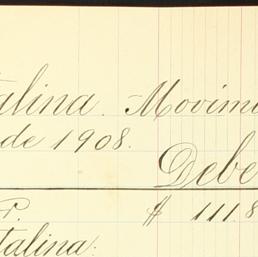 talina. Movim
de 1908.
Debe
P. $ 111.8
talina: